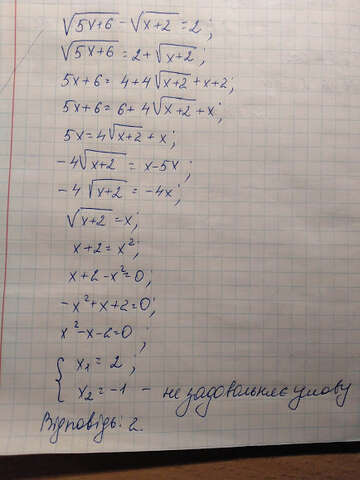 √5x+6 - √x+2 = 2 ;
√5x+6 = 2+√x+2 ;
5x+6 = 4+4√x+2 +x+2;
5x+6= 6+4√x+2 +x;
5x=4√x+2 +x;
-4√x+2 = x-5x;
-4 √x+2 = -4x;
√x+2 =x;
x+2=x²;
x+2-x²=0;
-x²+x+2=0;
x²-x-2=0 ;
{ x₁= 2 ;
x₂=-1 - не задовольняє умову
Відповідь: 2.